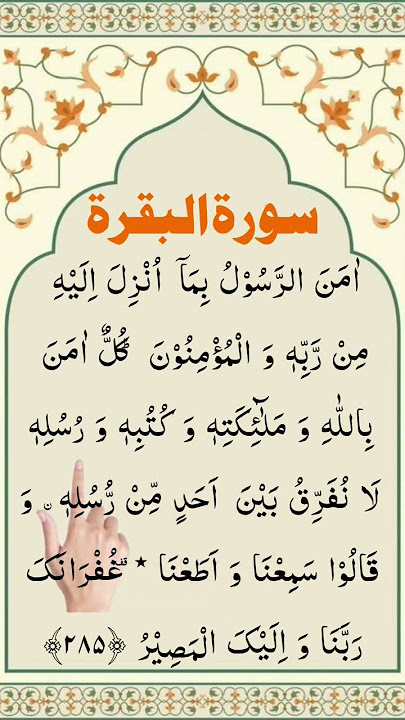 سورة البقرة
اٰمَنَ الرَّسُوْلُ بِمَاۤ اُنْزِلَ اِلَیْهِ
مِنْ رَّبِّهٖ وَ الْمُؤْمِنُوْنَ ؕ كُلٌّ اٰمَنَ
بِاللّٰهِ وَ مَلٰٓئِكَتِهٖ وَ كُتُبِهٖ وَ رُسُلِهٖ
لَا نُفَرِّقُ بَیْنَ اَحَدٍ مِّنْ رُّسُلِهٖ ۫ وَ
قَالُوْا سَمِعْنَا وَ اَطَعْنَا ٭ۗ غُفْرَانَكَ
رَبَّنَا وَ اِلَیْكَ الْمَصِیْرُ ﴿۲۸۵﴾